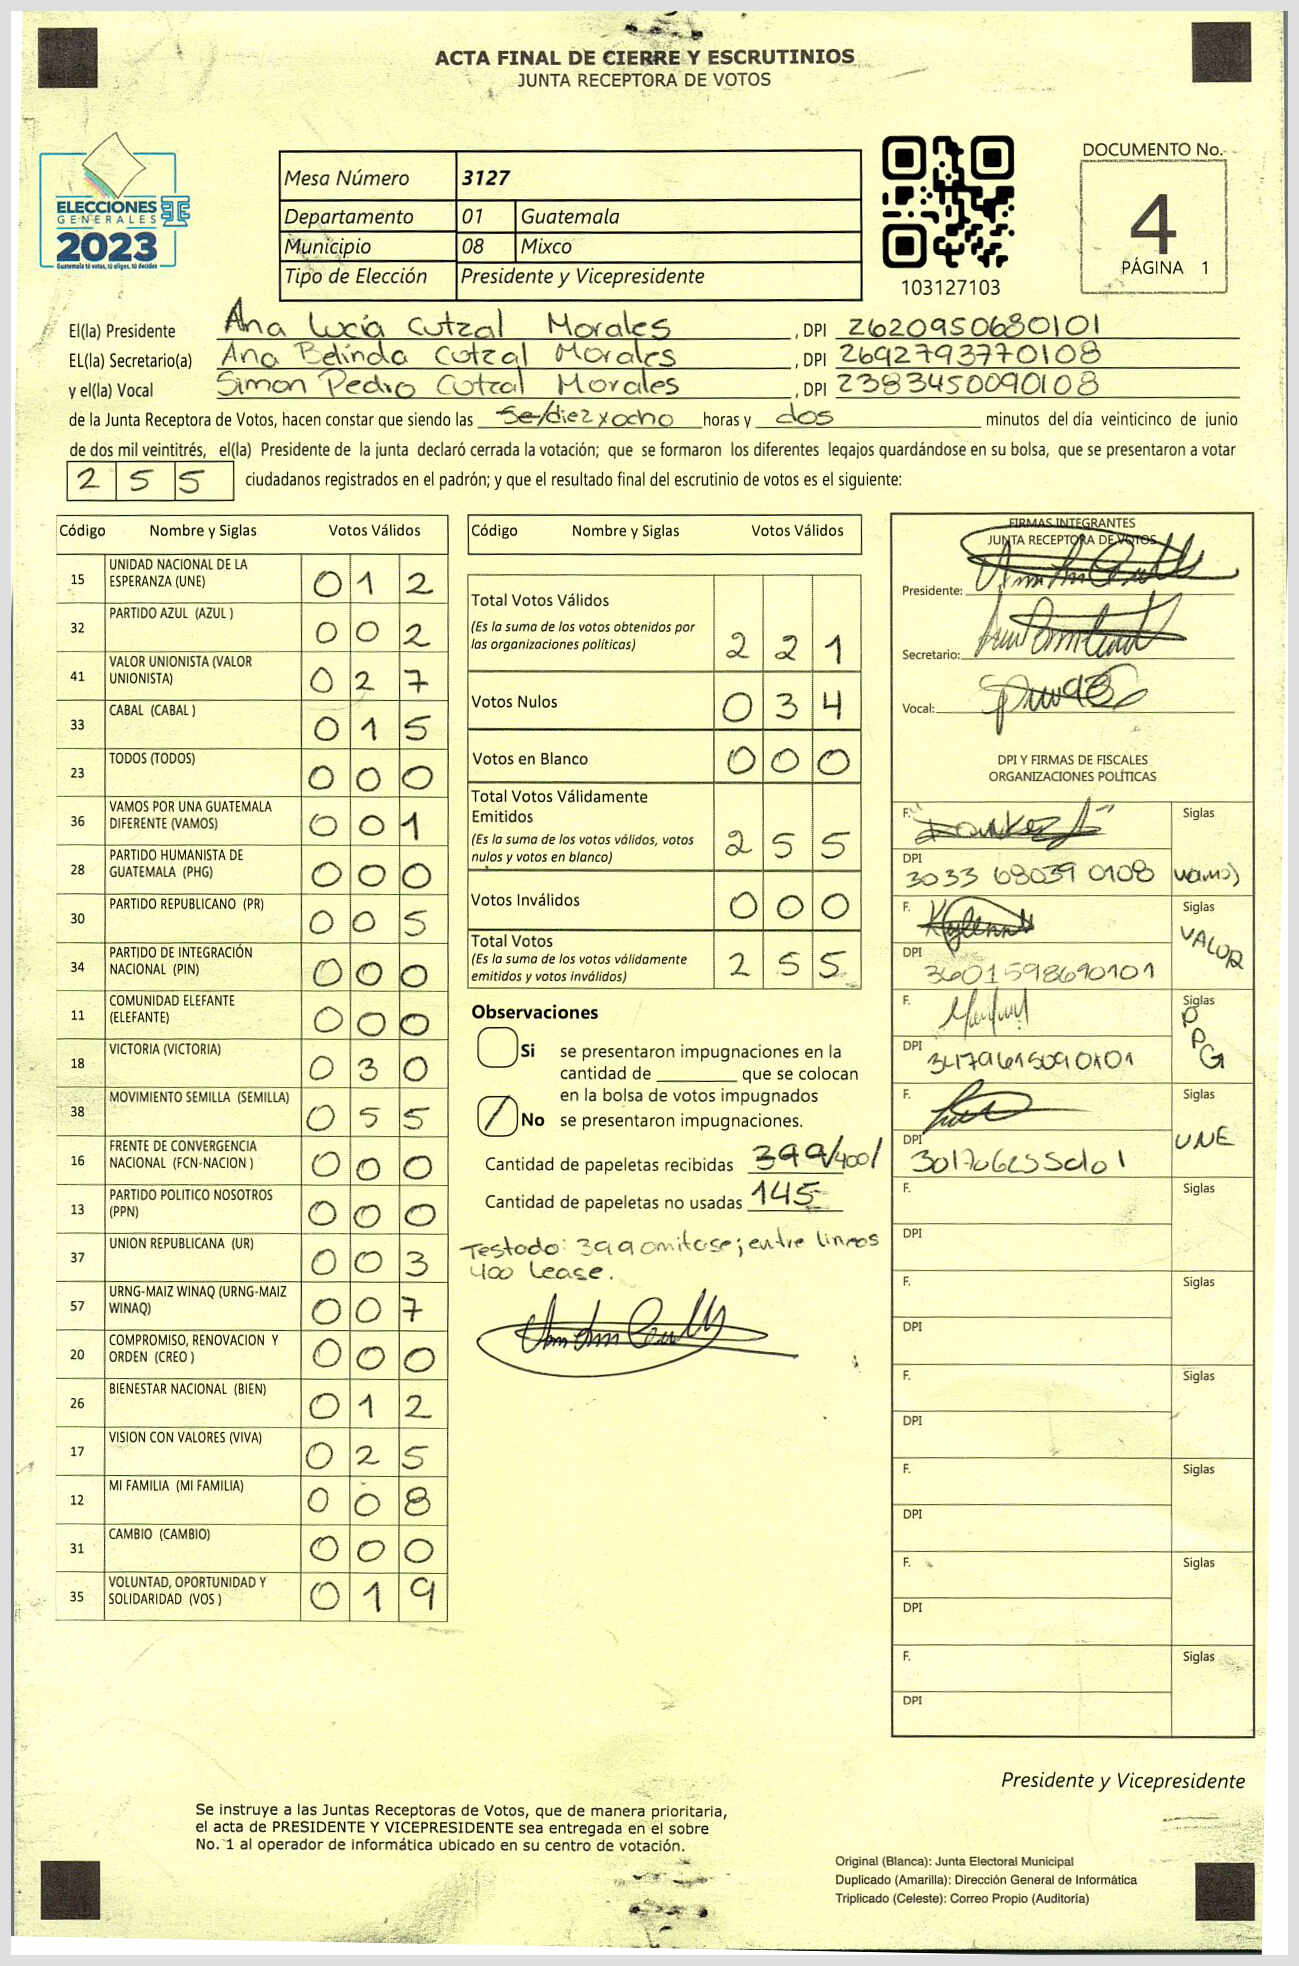 ACTA FINAL DE CIERRE Y ESCRUTINIOS
JUNTA RECEPTORA DE VOTOS
ELECCIONES
GENERALES
2023
Guatemala tú votas, tú eliges, tú decides
Mesa Número 3127
Departamento 01 Guatemala
Municipio 08 Mixco
Tipo de Elección Presidente y Vicepresidente
103127103
DOCUMENTO No.
4
PÁGINA 1
El(la) Presidente Ana Lucía Cutzal Morales , DPI 2620950680101
EL(la) Secretario(a) Ana Belinda Cutzal Morales , DPI 2692793770108
y el(la) Vocal Simon Pedro Cutzal Morales , DPI 2383450090108
de la Junta Receptora de Votos, hacen constar que siendo las se/diezyocho horas y dos minutos del día veinticinco de junio
de dos mil veintitrés, el(la) Presidente de la junta declaró cerrada la votación; que se formaron los diferentes legajos guardándose en su bolsa, que se presentaron a votar
2 5 5 ciudadanos registrados en el padrón; y que el resultado final del escrutinio de votos es el siguiente:
Código Nombre y Siglas Votos Válidos
15 UNIDAD NACIONAL DE LA ESPERANZA (UNE) 0 1 2
32 PARTIDO AZUL (AZUL ) 0 0 2
41 VALOR UNIONISTA (VALOR UNIONISTA) 0 2 7
33 CABAL (CABAL ) 0 1 5
23 TODOS (TODOS) 0 0 0
36 VAMOS POR UNA GUATEMALA DIFERENTE (VAMOS) 0 0 1
28 PARTIDO HUMANISTA DE GUATEMALA (PHG) 0 0 0
30 PARTIDO REPUBLICANO (PR) 0 0 5
34 PARTIDO DE INTEGRACIÓN NACIONAL (PIN) 0 0 0
11 COMUNIDAD ELEFANTE (ELEFANTE) 0 0 0
18 VICTORIA (VICTORIA) 0 3 0
38 MOVIMIENTO SEMILLA (SEMILLA) 0 5 5
16 FRENTE DE CONVERGENCIA NACIONAL (FCN-NACION ) 0 0 0
13 PARTIDO POLITICO NOSOTROS (PPN) 0 0 0
37 UNION REPUBLICANA (UR) 0 0 3
57 URNG-MAIZ WINAQ (URNG-MAIZ WINAQ) 0 0 7
20 COMPROMISO, RENOVACION Y ORDEN (CREO ) 0 0 0
26 BIENESTAR NACIONAL (BIEN) 0 1 2
17 VISION CON VALORES (VIVA) 0 2 5
12 MI FAMILIA (MI FAMILIA) 0 0 8
31 CAMBIO (CAMBIO) 0 0 0
35 VOLUNTAD, OPORTUNIDAD Y SOLIDARIDAD (VOS ) 0 1 9
Código Nombre y Siglas Votos Válidos
Total Votos Válidos
(Es la suma de los votos obtenidos por
las organizaciones políticas) 2 2 1
Votos Nulos 0 3 4
Votos en Blanco 0 0 0
Total Votos Válidamente
Emitidos
(Es la suma de los votos válidos, votos
nulos y votos en blanco) 2 5 5
Votos Inválidos 0 0 0
Total Votos
(Es la suma de los votos válidamente
emitidos y votos inválidos) 2 5 5
Observaciones
Si se presentaron impugnaciones en la
cantidad de ________ que se colocan
en la bolsa de votos impugnados
No se presentaron impugnaciones.
Cantidad de papeletas recibidas 399/400/
Cantidad de papeletas no usadas 145
Testado: 399 omitase; entre lineas
400 Lease.
FIRMAS INTEGRANTES
JUNTA RECEPTORA DE VOTOS
Presidente:
Secretario:
Vocal:
DPI Y FIRMAS DE FISCALES
ORGANIZACIONES POLÍTICAS
F. Siglas
DPI
3033 68039 0108 vamos
F. Siglas
VALOR
DPI
3601598690101
F. Siglas
PPG
DPI
F. Siglas
UNE
DPI
F. Siglas
DPI
F. Siglas
DPI
F. Siglas
DPI
F. Siglas
DPI
F. Siglas
DPI
F. Siglas
DPI
Presidente y Vicepresidente
Se instruye a las Juntas Receptoras de Votos, que de manera prioritaria,
el acta de PRESIDENTE Y VICEPRESIDENTE sea entregada en el sobre
No. 1 al operador de informática ubicado en su centro de votación.
Original (Blanca): Junta Electoral Municipal
Duplicado (Amarilla): Dirección General de Informática
Triplicado (Celeste): Correo Propio (Auditoría)